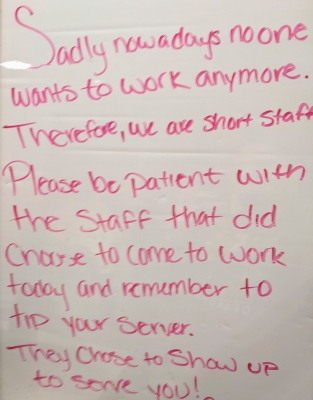 Sadly nowadays no one
wants to work anymore.
Therefore, we are short staff
Please be patient with
the staff that did
choose to come to work
today and remember to
tip your server.
They chose to show up
to serve you!